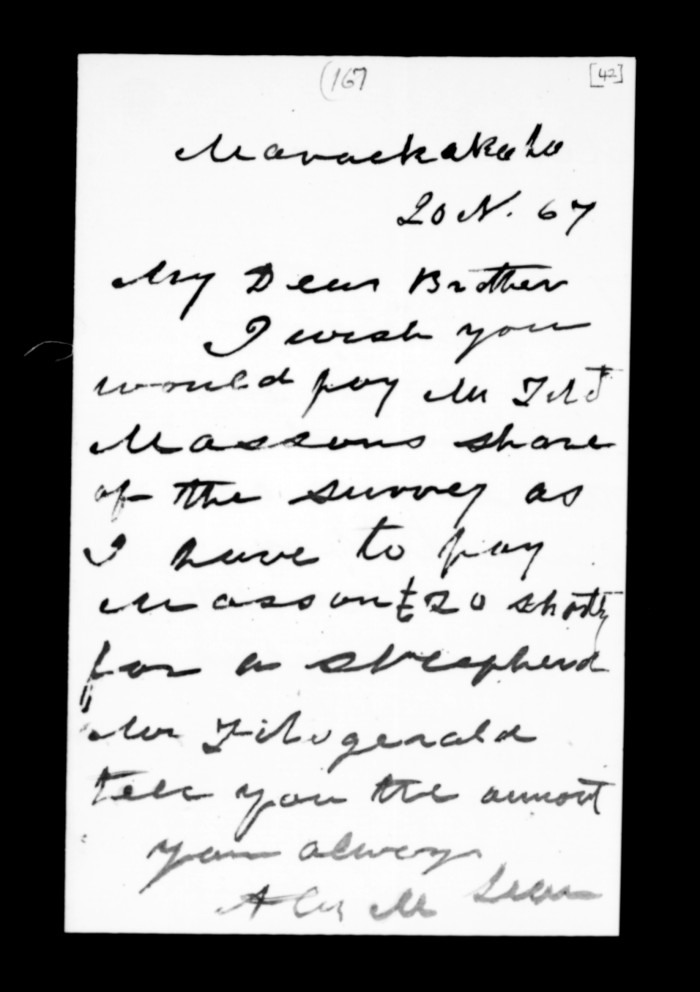 (167
[42]
Maraekakaho
20 N. 67
My Dear Brother
I wish you
would pay Mr
Massons share
of the survey as
I have to pay
Masson £20 shortly
for a sheepherd
Mr Fitzgerald
tell you the amont
your always
Alex McLean